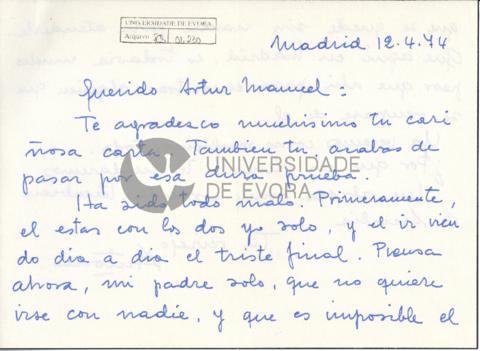 UNIVERSIDADE DE EVORA
Arquivo
Madrid 12.4.74
Querido Artur Manuel:
Te agradesco muchisimo tu cari
ñosa carta. Tambien tu acabas de
pasar por esa dura prueba.
UNIVERSIDADE
DE EVORA
Ha sido todo malo. Primeramente,
el estas con los dos yo solo, y el ir vien
do dia a dia el triste final. Piensa
ahora, mi padre solo, que no quiere
irse con nadie, y que es imposible el